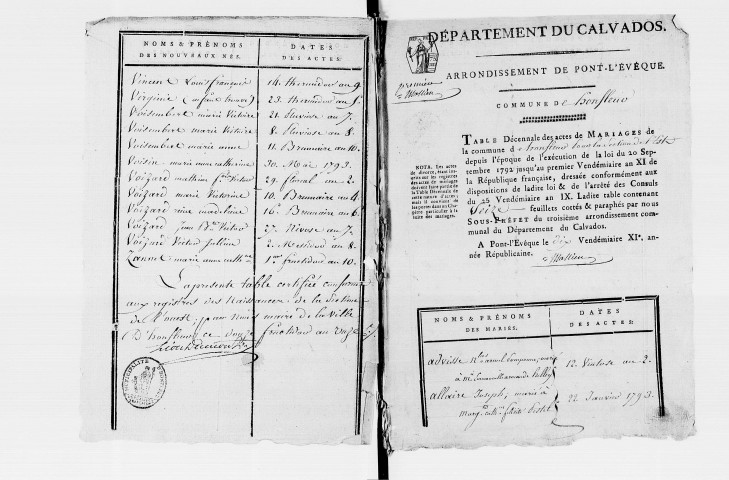 NOMS & PRÉNOMS
DES NOUVEAUX NÉS.
DATES
DES ACTES:
Vincent Louis françois 14 thermidor an 9.
Virginie (enfant trouvé) 23 thermidor an
Voisembert marie Victoire 21 Pluviose an 7.
Voisembert marie Victoire 8. Pluviose an 8.
Voisembert marie anne 11 Brumaire an 10.
Voisin marie anne catherine 30 Mai 1793.
Voizard mathieu Victor 29. floreal an 2.
Voizard marie Victorine 10. Brumaire an 4.
Voizard reine madelaine 16. Brumaire an 6.
Voizard jean Bte Victor 27. Nivose an 7.
Voizard Victor Julien 2. Messidor an 8.
Zanne marie anne 1er fructidor an 10.
La presente table certifiée conforme
aux registres des Naissances de la section
de l'ouest, par nous maire de la ville
d'honfleur ce douze fructidor an onze
MUNICIPALITÉ
DÉPARTEMENT DU CALVADOS.
ARRONDISSEMENT DE PONT-L'ÉVÊQUE.
premier
COMMUNE de honfleur
TABLE Décennale des actes de MARIAGES de
la commune d honfleur
depuis l'époque de l'exécution de la loi du 20 Sep-
tembre 1792 jusqu'au premier Vendémiaire an XI de
la République française, dressée conformément aux
dispositions de ladite loi & de l'arrêté des Consuls
du 25 Vendémiaire an IX. Ladite table contenant
Seize feuillets cottés & paraphés par nous
SOUS-PRÉFET du troisième arrondissement com-
munal du Département du Calvados.
A Pont-l'Évêque le dix Vendémiaire XIe. an-
née Républicaine.
NOTA. Les actes
de divorce, étant
inscrits sur les registres
des actes de mariages
doivent faire partie de
la Table Décennale de
cette nature d'actes;
mais il convient de
les porter dans un Cha-
pitre particulier à la
suite des mariages.
NOMS & PRÉNOMS
DES MARIÉS.
DATES
DES ACTES:
advisse marié 12 Ventose an 2.
allaire Joseph, marié à 22 Janvier 1793.